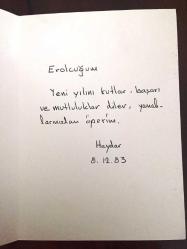 Erolcuğum
Yeni yılını kutlar, başarı
ve mutluluklar diler, yanak-
larından öperim.
Haydar
8.12.83